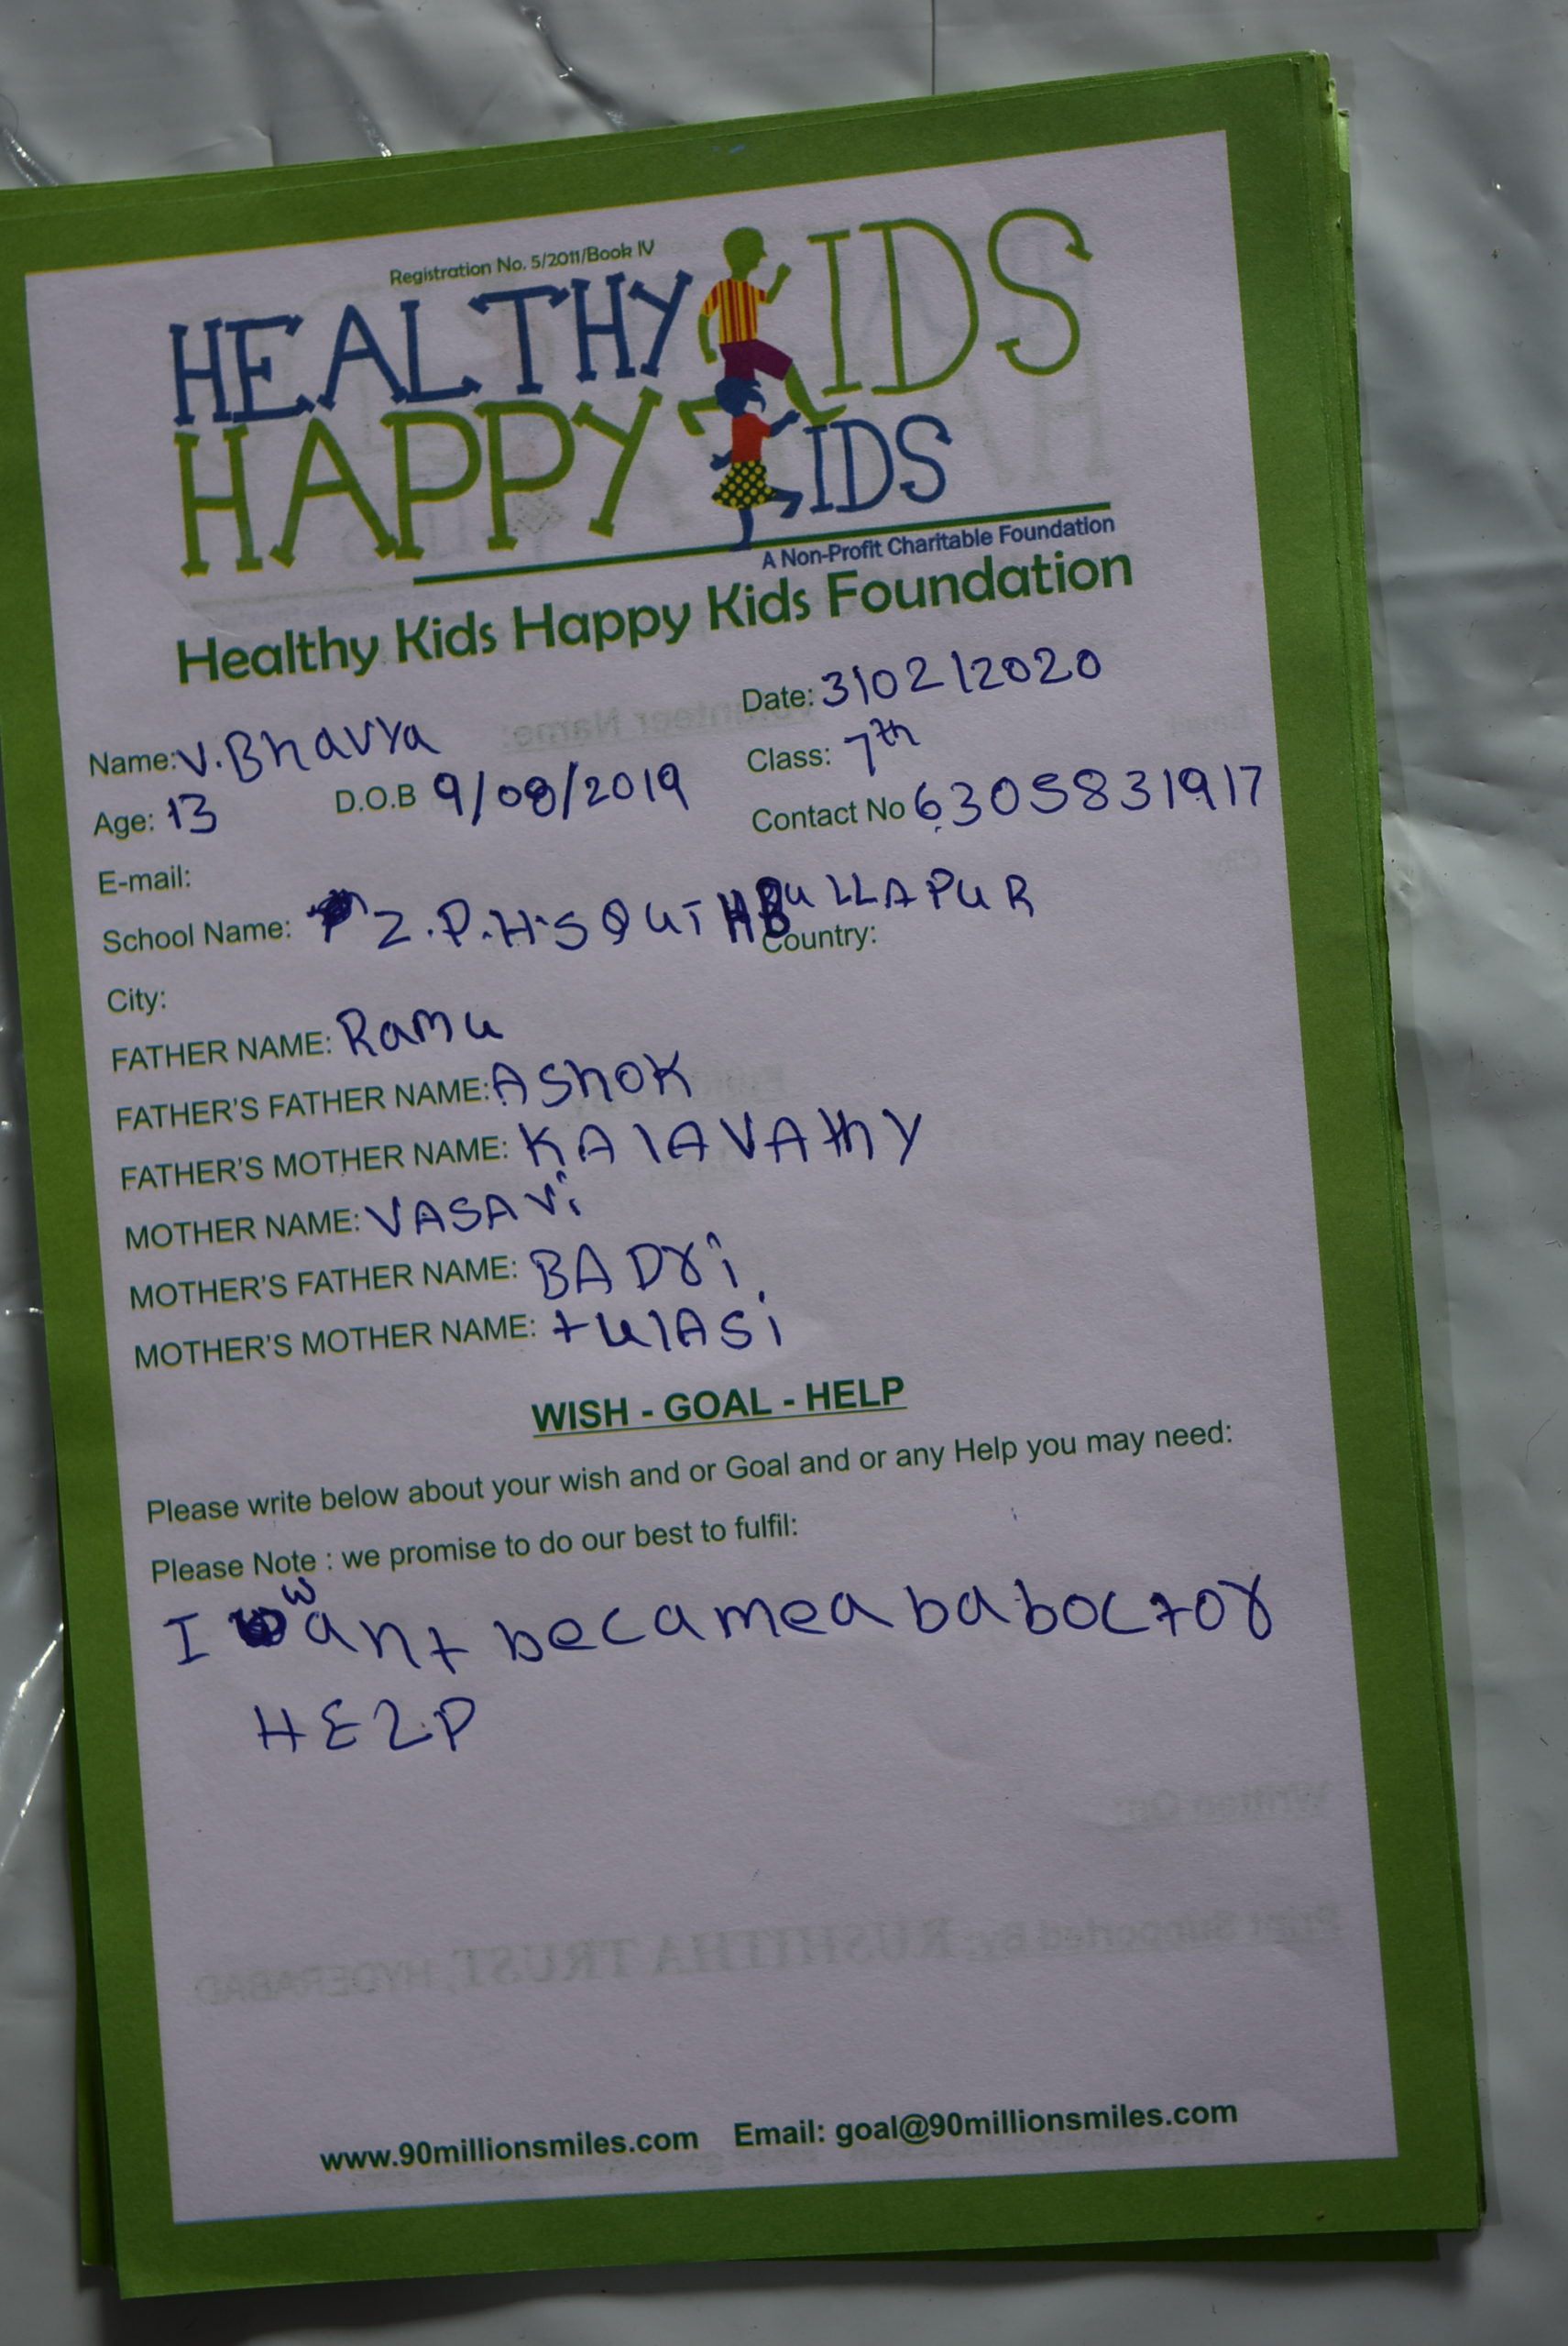 Registration No. 5/2011/Book IV
HEALTHY KIDS
HAPPY KIDS
A Non-Profit Charitable Foundation
Healthy Kids Happy Kids Foundation
Date: 3/02/2020
Name: V.Bhavya
Class: 7th
Age: 13 D.O.B 9/08/2019
Contact No 6305831917
E-mail:
School Name: Z.P.H.S QUTHBULLAPUR
Country:
City:
FATHER NAME: Ramu
FATHER'S FATHER NAME: AShOK
FATHER'S MOTHER NAME: KAlAVAthy
MOTHER NAME: VASAVi
MOTHER'S FATHER NAME: BADri
MOTHER'S MOTHER NAME: tulASi
WISH - GOAL - HELP
Please write below about your wish and or Goal and or any Help you may need:
Please Note : we promise to do our best to fulfil:
I want becamea ba boctor
HELP
Written On:
Print Supported By: RUSHITHA TRUST, HYDERABAD
www.90millionsmiles.com Email: goal@90millionsmiles.com